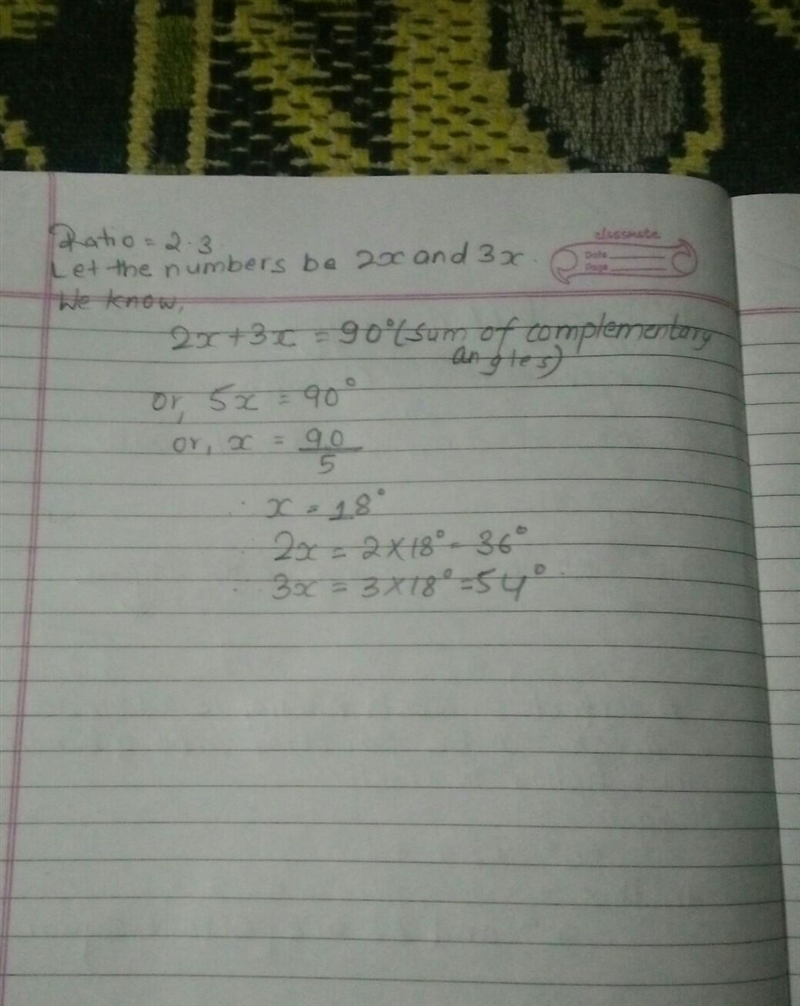 Ratio = 2.3
classmate
Let the numbers be 2x and 3x.
Date
Page
We know,
2x + 3x = 90° (sum of complementary
angles)
or, 5x = 90°
or, x = 90
5
x = 18°
2x = 2 × 18° = 36°
3x = 3 × 18° = 54°